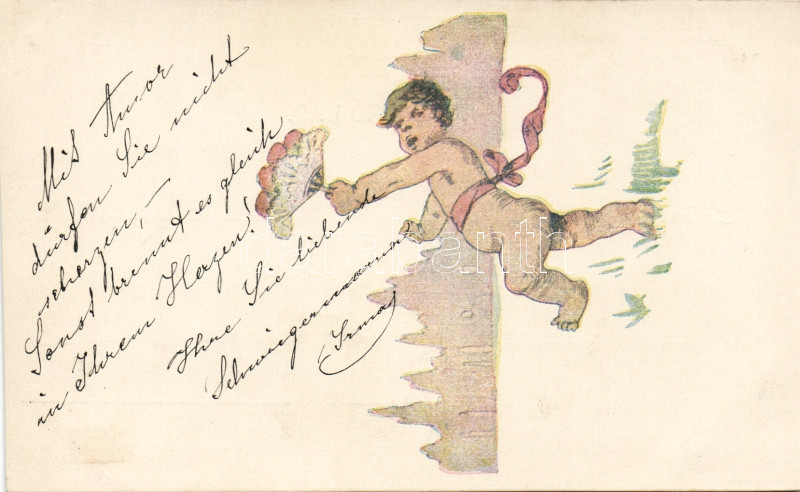 Mit Amor
dürfen Sie nicht
scherzen, —
Sonst brennt es gleich
in Ihrem Herzen!
Ihre Sie liebende
Schwiegermama
(Irma)
darabanth